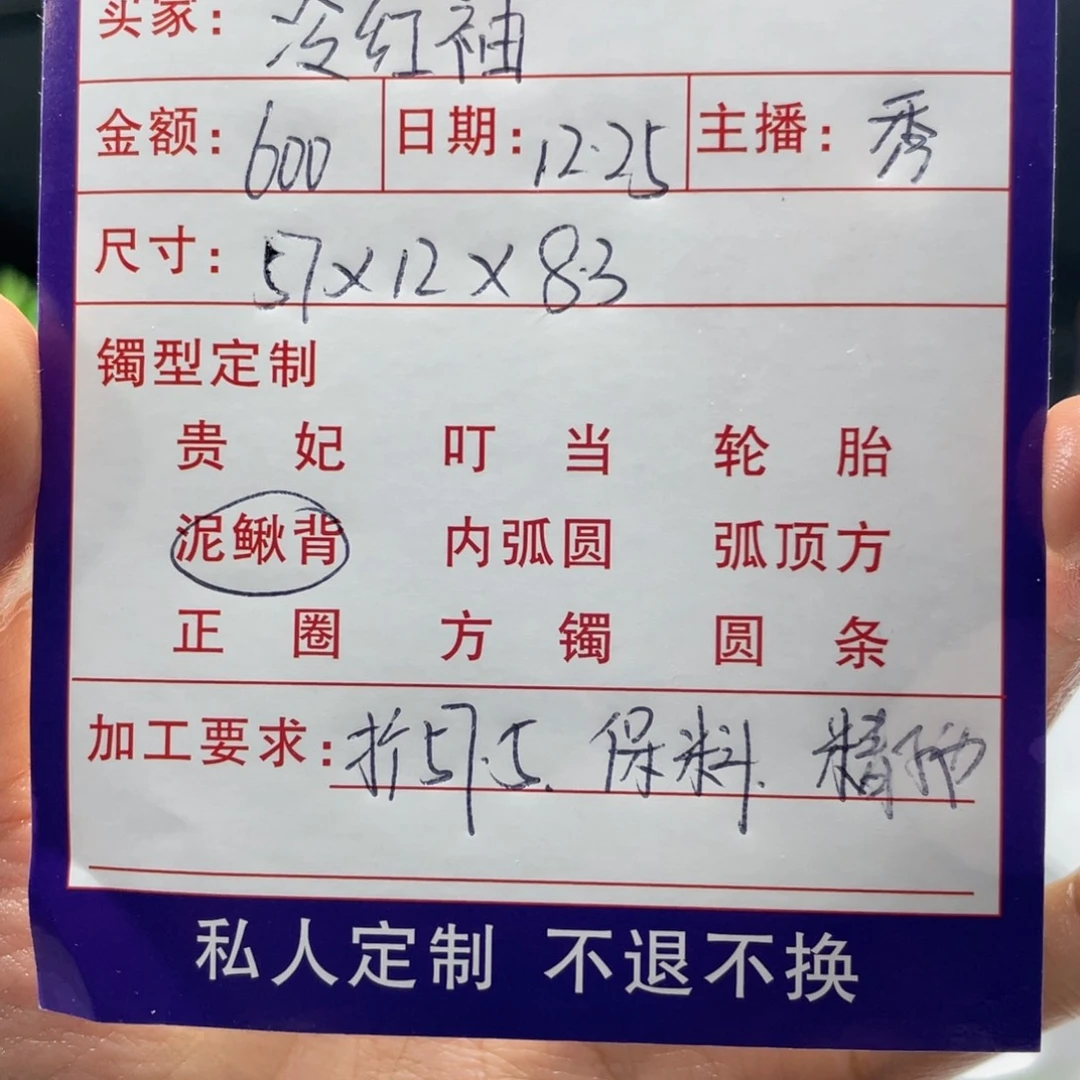 买家：冷红袖
金额：600 日期：12.25 主播：秀
尺寸：57×12×8.3
镯型定制
贵妃 叮当 轮胎
泥鳅背 内弧圆 弧顶方
正圈 方镯 圆条
加工要求：折57.5. 保料. 精抛
私人定制 不退不换